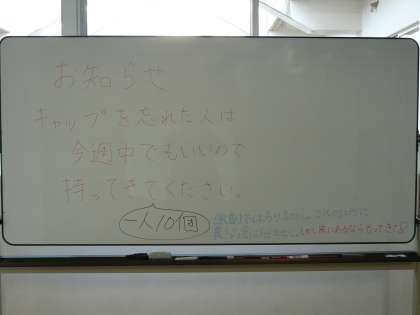 お知らせ
キャップを忘れた人は
今週中でもいいので
持ってきてください。
一人10個